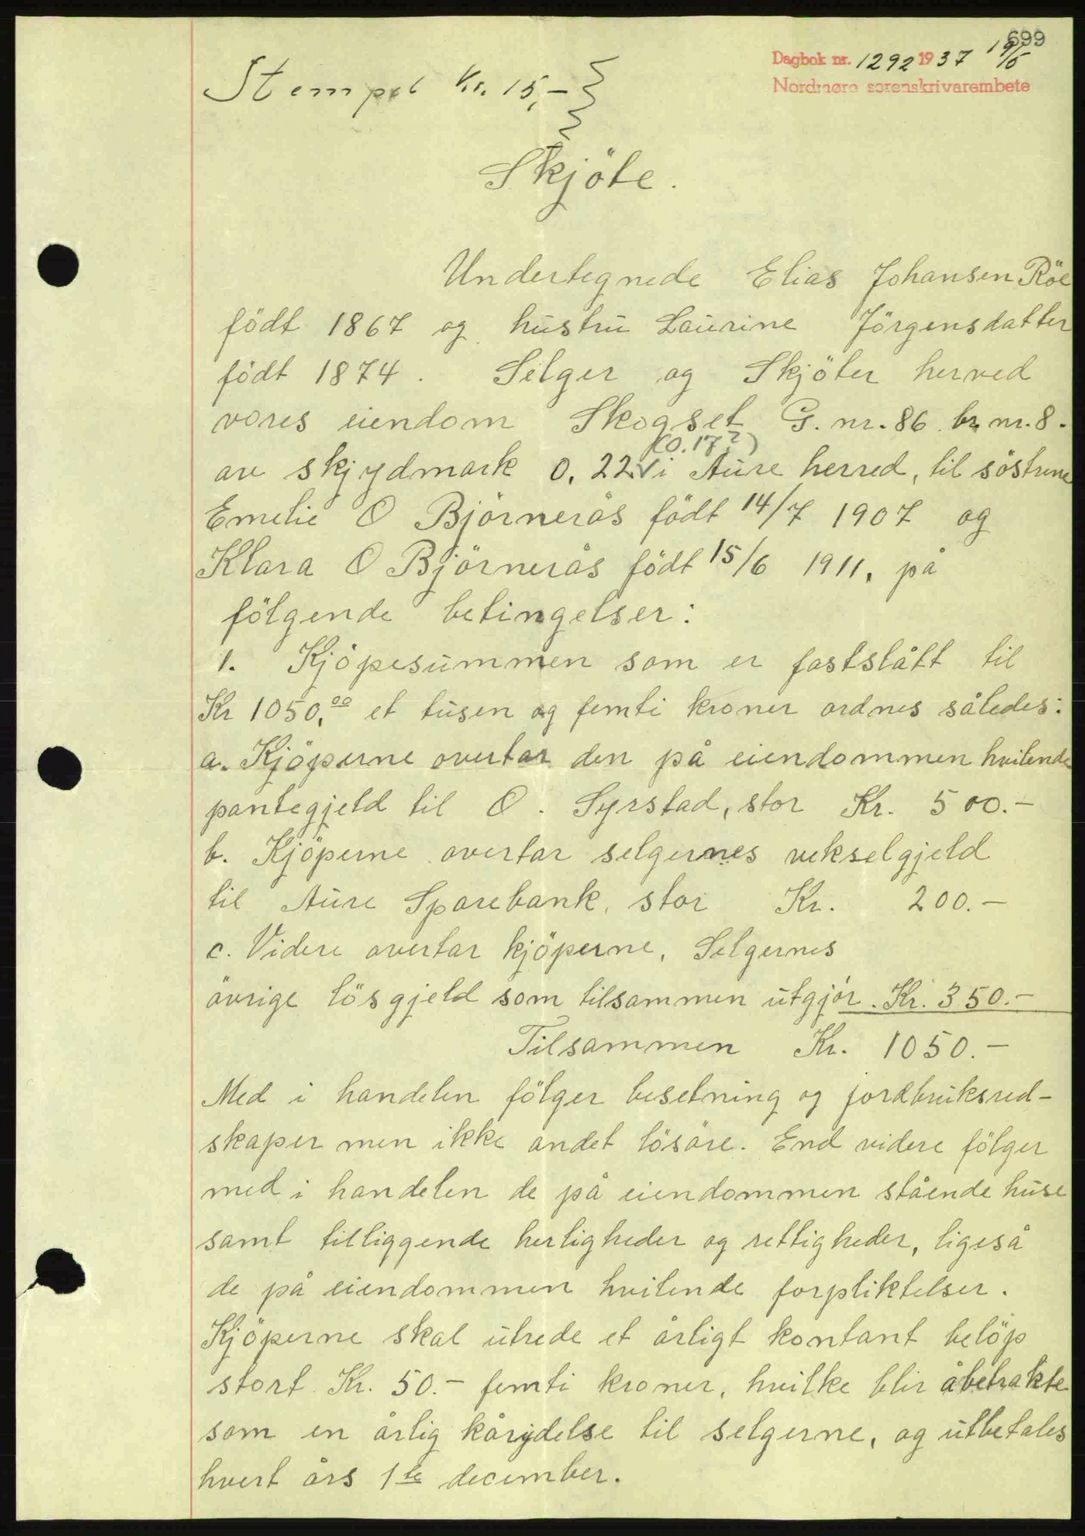 699
Dagbok nr. 1292 1937 19/5
Nordmøre sorenskrivarembete
Stempel Kr. 15,-
Skjöte.
Undertegnede Elias Johansen Röe
födt 1867 og hustru Laurine Jörgensdatter
födt 1874. Selger og Skjöter herved
vores eiendom Skogset G. nr. 86 br nr. 8.
(0.17?)
av skjydmark 0,22 i Aure herred, til söstrene
Emelie O Björnerås födt 14/7 1907 og
Klara O Björnerås födt 15/6 1911, på
fölgende betingelser:
1. Kjöpesummen som er fastslått til
Kr 1050,00 et tusen og femti kroner ordnes således:
a. Kjöperne overtar den på eiendommen hvilende
pantegjeld til O. Syrstad, stor Kr. 500.-
b. Kjöperne overtar selgernes vekselgjeld
til Aure Sparebank, stor Kr. 200.-
c. Videre overtar kjöperne, Selgernes
övrige lösgjeld som tilsammen utgjör. Kr. 350.-
Tilsammen Kr. 1050.-
Med i handelen fölger besetning og jordbruksred-
skaper men ikke andet lösöre. End videre fölger
med i handelen de på eiendommen stående huse
samt tilliggende herligheder og rettigheder, ligeså
de på eiendommen hvilende forpliktelser.
Kjöperne skal utrede et årligt kontant belöp
stort Kr. 50.- femti kroner, hvilke blir å betrakte
som en årlig kårydelse til selgerne, og utbetales
hvert års 1ste december.